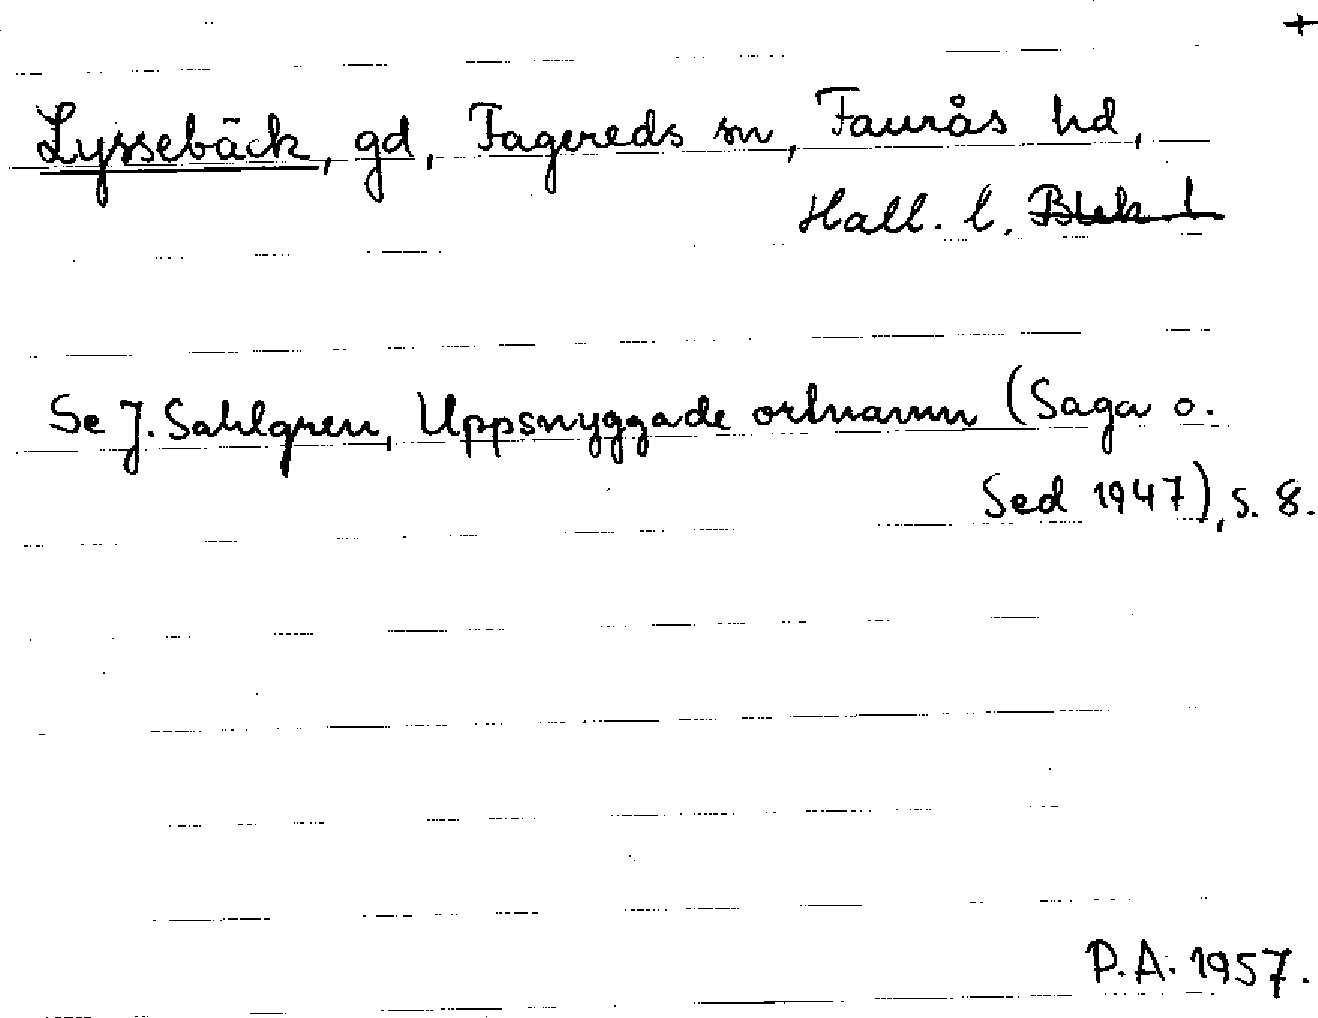 +
Lyssebäck, gd, Fagereds sn, Faurås hd,
Hall. l. Blek. l
Se J. Sahlgren, Uppsnyggade ortnamn (Saga o.
Sed 1947), s. 8.
P.A. 1957.